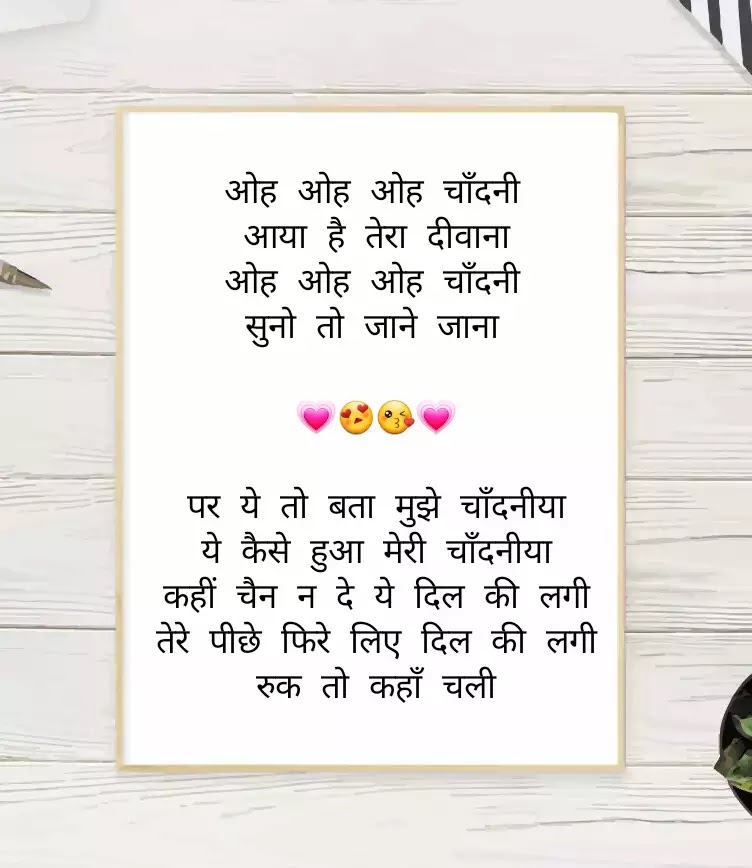 ओह ओह ओह चाँदनी
आया है तेरा दीवाना
ओह ओह ओह चाँदनी
सुनो तो जाने जाना
💗😍😘💗
पर ये तो बता मुझे चाँदनीया
ये कैसे हुआ मेरी चाँदनीया
कहीं चैन न दे ये दिल की लगी
तेरे पीछे फिरे लिए दिल की लगी
रुक तो कहाँ चली